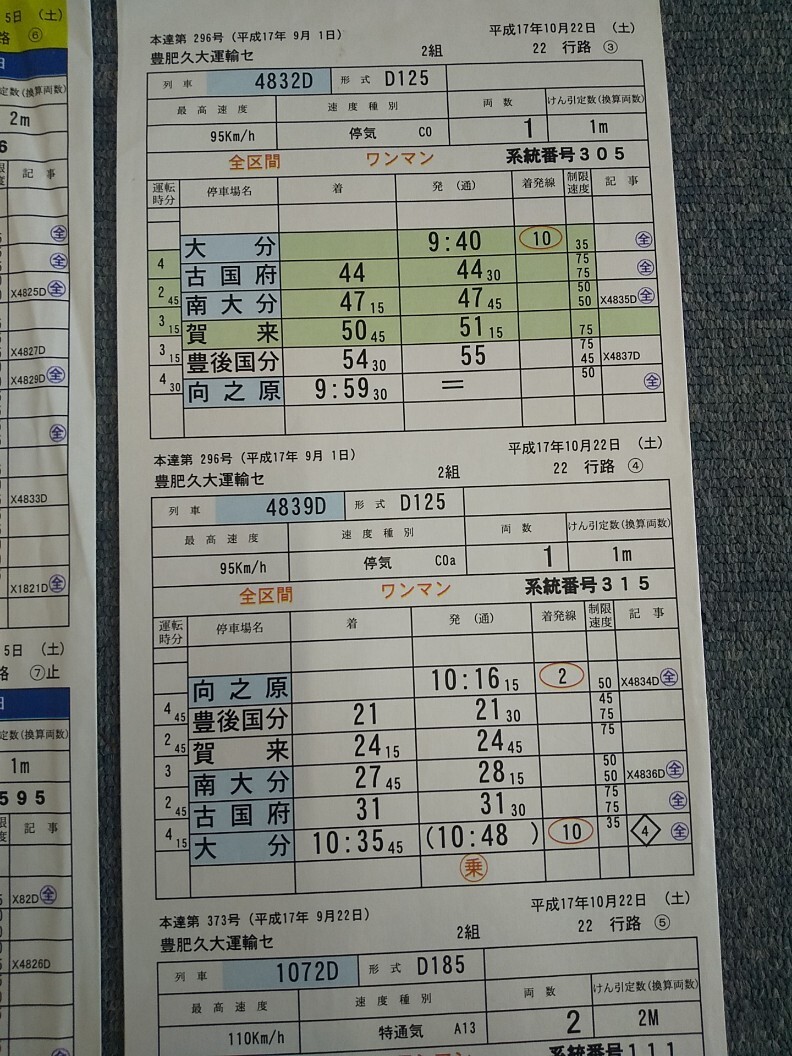 5日 （土）
路 ⑥
日
定数(換算両数)
2m
6
限度 記 事
全
全
X4825D 全
X4827D
X4829D 全
全
X4833D
X1821D 全
5日 （土）
路 ⑦止
日
定数(換算両数)
1m
595
限度 記 事
X82D 全
X4826D
本達第 296号 (平成17年 9月 1日) 平成17年10月22日 （土）
豊肥久大運輸セ 2組 22 行路 ③
列 車 4832D 形 式 D125
最 高 速 度 速 度 種 別 両 数 けん引定数(換算両数)
95Km/h 停気 C0 1 1m
全区間 ワンマン 系統番号305
運転時分 停車場名 着 発 (通) 着発線 制限速度 記 事
大 分 9:40 10 35 全
4 75
古国府 44 44 30 75 全
2 45 50
南大分 47 15 47 45 50 X4835D 全
3 15
賀 来 50 45 51 15 75
3 15 75
豊後国分 54 30 55 45 X4837D
4 30 50
向之原 9:59 30 ＝ 全
本達第 296号 (平成17年 9月 1日) 平成17年10月22日 （土）
豊肥久大運輸セ 2組 22 行路 ④
列 車 4839D 形 式 D125
最 高 速 度 速 度 種 別 両 数 けん引定数(換算両数)
95Km/h 停気 C0a 1 1m
全区間 ワンマン 系統番号315
運転時分 停車場名 着 発 (通) 着発線 制限速度 記 事
向之原 10:16 15 2 50 X4834D 全
4 45 45
豊後国分 21 21 30 75
2 45 75
賀 来 24 15 24 45
3 50
南大分 27 45 28 15 50 X4836D 全
2 45 75
古国府 31 31 30 75 全
4 15 35
大 分 10:35 45 (10:48 ) 10 4 全
乗
本達第 373号 (平成17年 9月22日) 平成17年10月22日 （土）
豊肥久大運輸セ 2組 22 行路 ⑤
列 車 1072D 形 式 D185
最 高 速 度 速 度 種 別 両 数 けん引定数(換算両数)
110Km/h 特通気 A13 2 2M
全区間 ワンマン 系統番号111